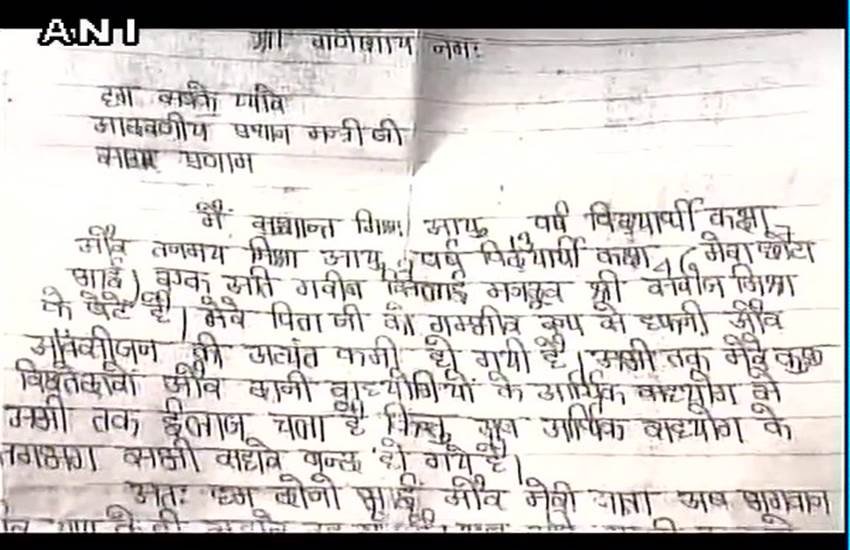 ANI
श्री गणेशाय नमः
हम सबके प्यारे
आदरणीय प्रधान मन्त्री जी
सादर प्रणाम
मैं सुशान्त मिश्रा आयु वर्ष विद्यार्थी कक्षा
और तनमय मिश्रा आयु वर्ष विद्यार्थी कक्षा (मेरा छोटा
भाई) एक अति गरीब सिलाई मजदूर श्री सरोज मिश्रा
के बेटे हैं। मेरे पिता जी को गम्भीर रूप से और
की अत्यंत कमी हो गयी है। अभी तक मेरे कुछ
और सभी सहयोगियों के आर्थिक सहयोग से
अभी तक ईलाज चला है किन्तु अब आर्थिक सहयोग के
लगभग सभी सहारे बन्द हो गये हैं।
अतः हम दोनो भाई और मेरी माता अब भगवान